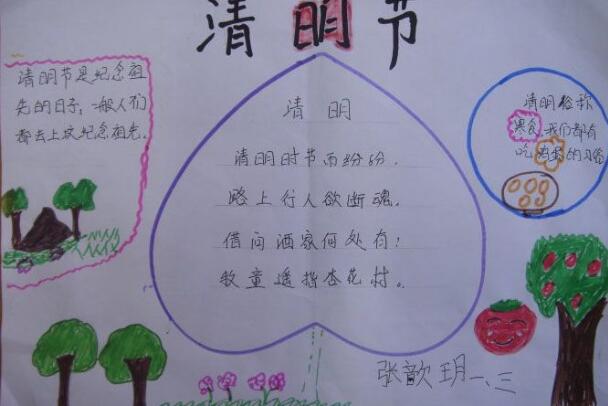 清明节
清明节是纪念祖
先的日子,一般人们
都去上坟纪念祖先。
清 明
清明时节雨纷纷,
路上行人欲断魂。
借问酒家何处有?
牧童遥指杏花村。
清明俗称
寒食,我们都有
吃鸡蛋的习俗
张歆玥 一、三